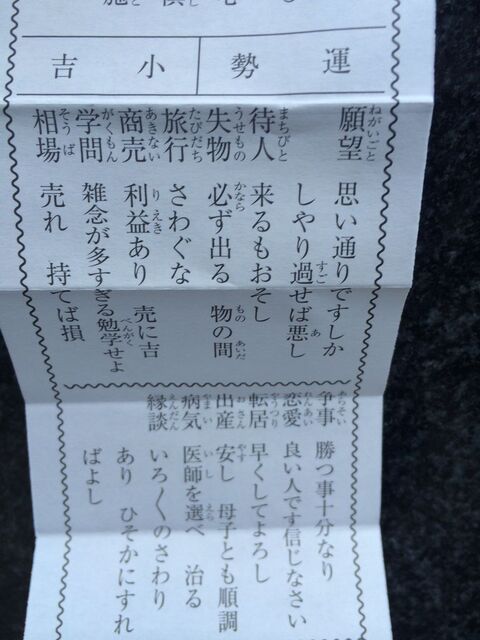 運勢
小吉
願望 思い通りですしか
しやり過せば悪し
待人 来るもおそし
失物 必ず出る 物の間
旅行 さわぐな
商売 利益あり 売に吉
学問 雑念が多すぎる勉学せよ
相場 売れ 持てば損
争事 勝つ事十分なり
恋愛 良い人です信じなさい
転居 早くしてよろし
出産 安し 母子とも順調
病気 医師を選べ 治る
縁談 いろ〱のさわり
あり ひそかにすれ
ばよし